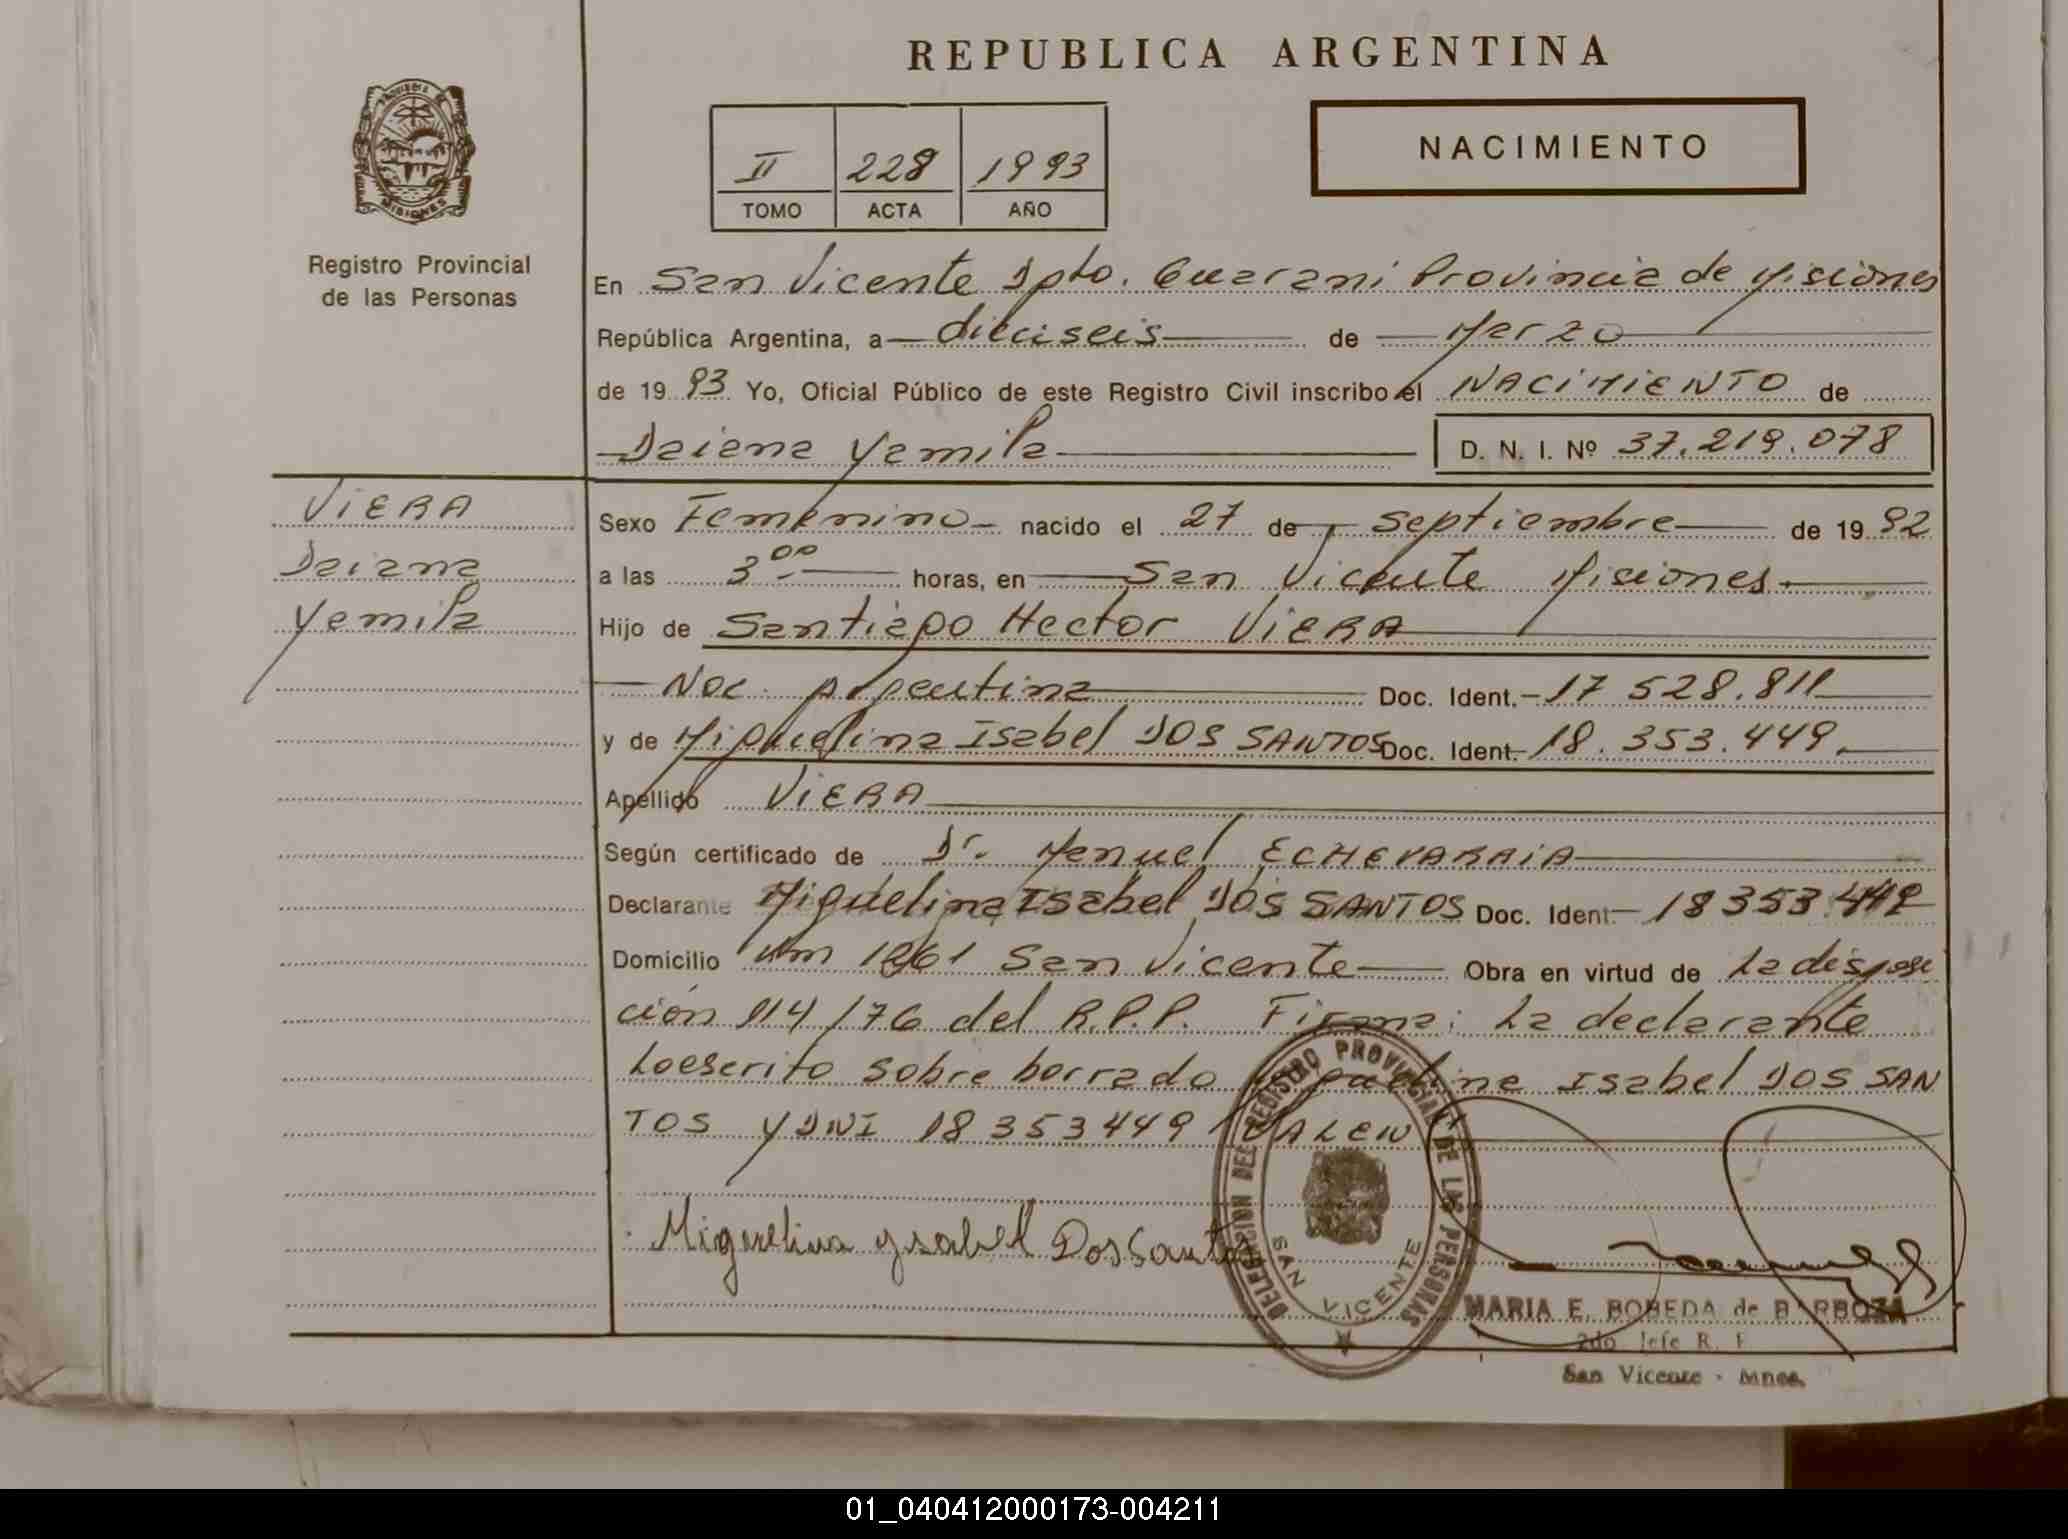 REPUBLICA ARGENTINA
PROVINCIA DE
MISIONES
Registro Provincial
de las Personas
II 228 1993
TOMO ACTA AÑO
NACIMIENTO
En San Vicente Dpto. Guarani Provincia de Misiones
República Argentina, a dieciseis de Marzo
de 1993 Yo, Oficial Público de este Registro Civil inscribo el NACIMIENTO de
Daiana Yamila D. N. I. Nº 37.219.078
VIERA
Daiana
Yamila
Sexo Femenino nacido el 27 de septiembre de 1992
a las 3 00 horas, en San Vicente Misiones
Hijo de Santiago Hector VIERA
Nac. Argentina Doc. Ident. 17 528.811
y de Miguelina Isabel DOS SANTOS Doc. Ident. 18.353.449.
Apellido VIERA
Según certificado de Dr. Manuel ECHEVARRIA
Declarante Miguelina Isabel DOS SANTOS Doc. Ident. 18353.449
Domicilio Km 1261 San Vicente Obra en virtud de la disposi
ción 114/76 del R.P.P. Firma: la declarante
Lo escrito sobre borrado Miguelina Isabel DOS SAN
TOS Y DNI 18353449 VALEN
Miguelina ysabel Dos Santos
DELEGACION DEL REGISTRO PROVINCIAL DE LAS PERSONAS
SAN VICENTE
MARIA E. BOBEDA de BARBOZA
2do. Jefe R. P.
San Vicente - Mnes.
01_040412000173-004211